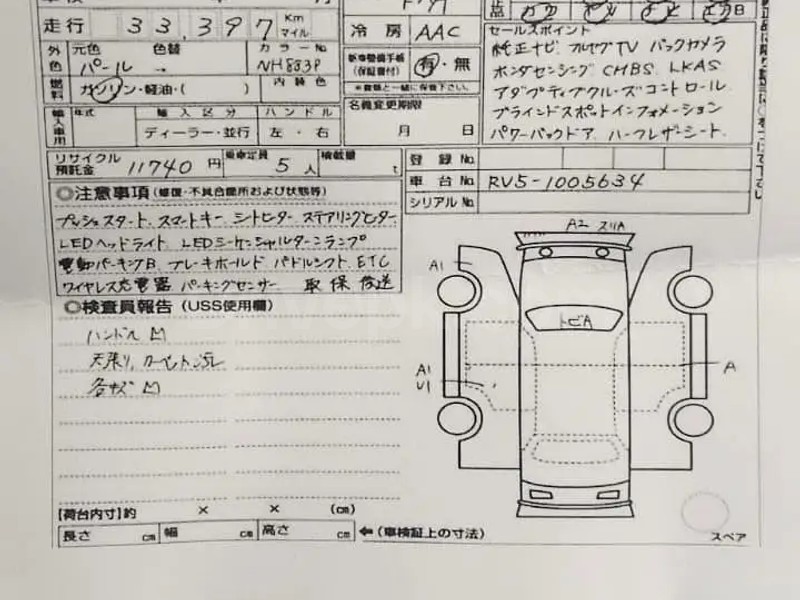 走行 33,397 Km マイル
冷房 AAC
セールスポイント
純正ナビ フルセグTV バックカメラ
ホンダセンシング CMBS LKAS
アダプティブクルーズコントロール
ブラインドスポットインフォメーション
パワーバックドア ハーフレザーシート
外色 元色 パール 色替 → カラーNo NH883P
燃料 ガソリン・軽油・( ) 内装色
新車整備手帳(保証書付) 有・無
※書類と一緒に保管下さい。
名義変更期限 月 日
輸入車用 年式 輸入区分 ハンドル
ディーラー・並行 左・右
リサイクル預託金 11740円 乗車定員 5人 積載量 t
登録No.
車台No. RV5-1005634
シリアルNo.
◎注意事項(修復・不具合箇所および状態等)
プッシュスタート スマートキー シートヒーター ステアリングヒーター
LEDヘッドライト LEDシーケンシャルターンランプ
電動パーキングB ブレーキホールド パドルシフト ETC
ワイヤレス充電器 パーキングセンサー 取保後送
◎検査員報告(USS使用欄)
ハンドル
天張り、カーペット
A2 スリA
A1
トビA
A
A1
U1
【荷台内寸】約 × × (cm)
長さ cm 幅 cm 高さ cm ←(車検証上の寸法)
スペア